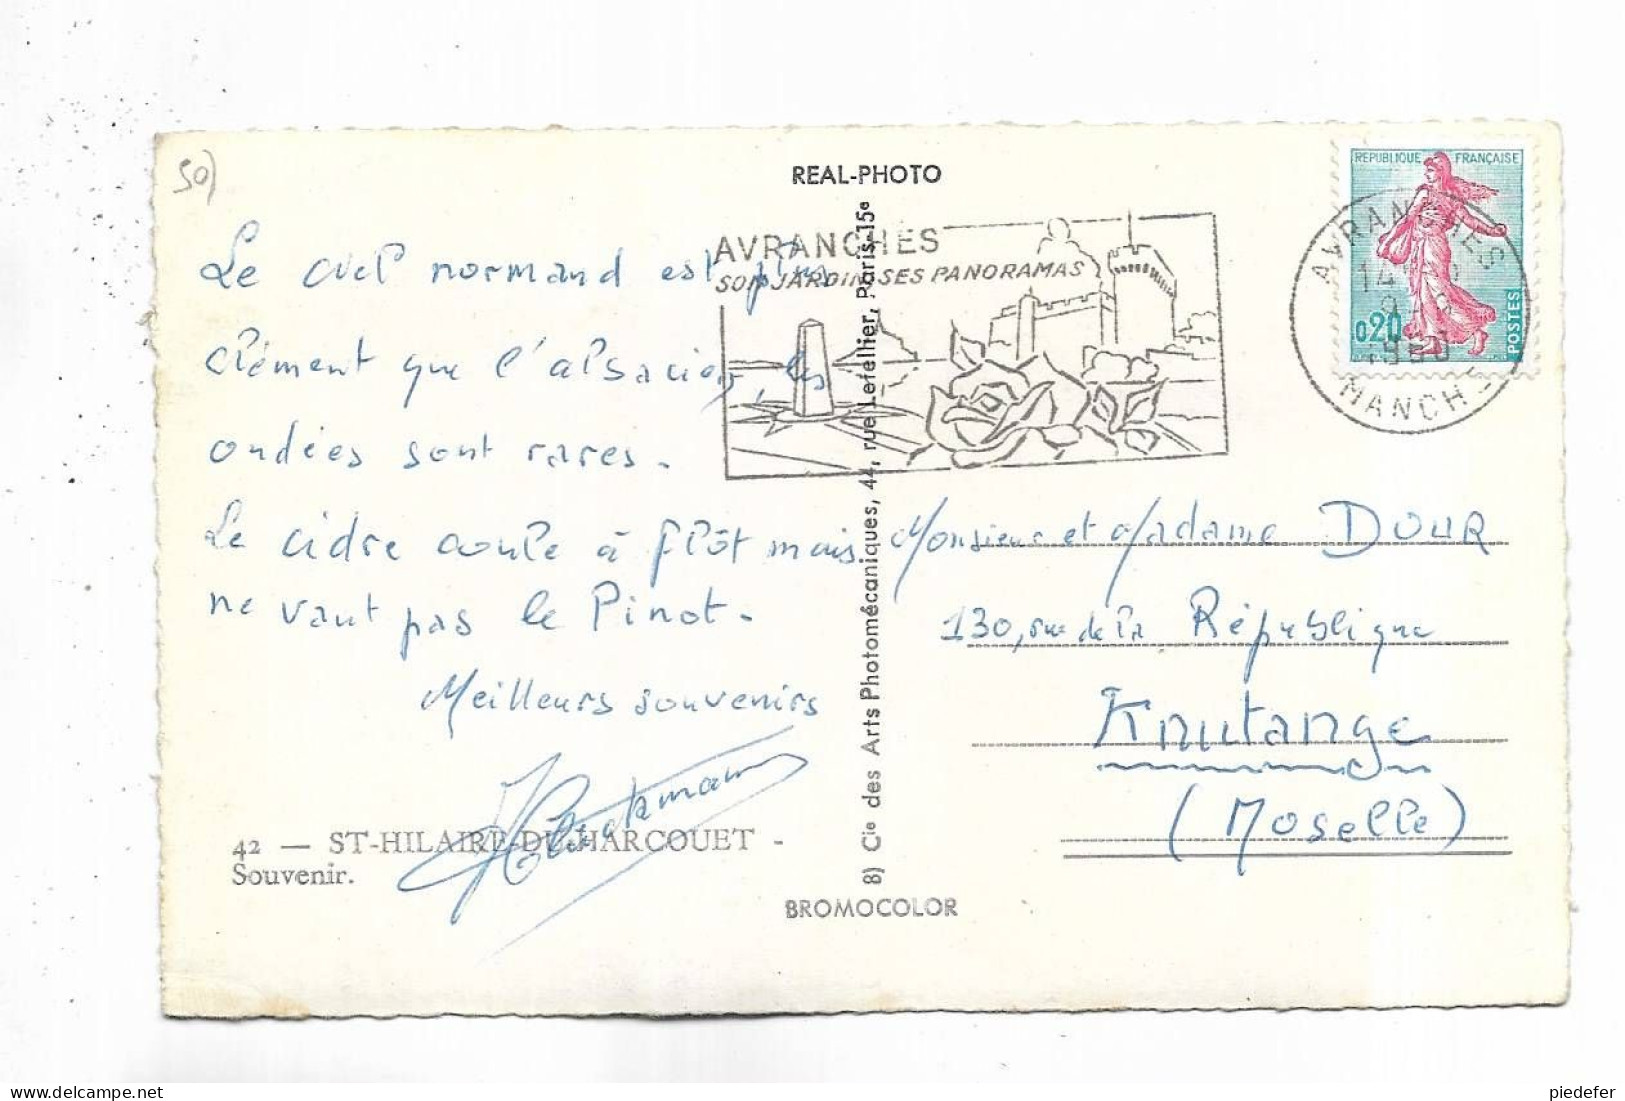 50)
REAL-PHOTO
REPUBLIQUE FRANÇAISE
0,20
POSTES
AVRANCHES
MANCHE
AVRANCHES
SON JARDIN SES PANORAMAS
Le ciel normand est plus
clément que l'alsacien, les
ondées sont rares.
Le cidre coule à flôt mais
ne vaut pas le Pinot.
Meilleurs souvenirs
Monsieur et Madame DOUR
130, rue de la République
Knutange
(Moselle)
8) Cie des Arts Photomécaniques, 44, rue Letellier, Paris-15e
42 — ST-HILAIRE-DU-HARCOUET -
Souvenir.
BROMOCOLOR
piedefer